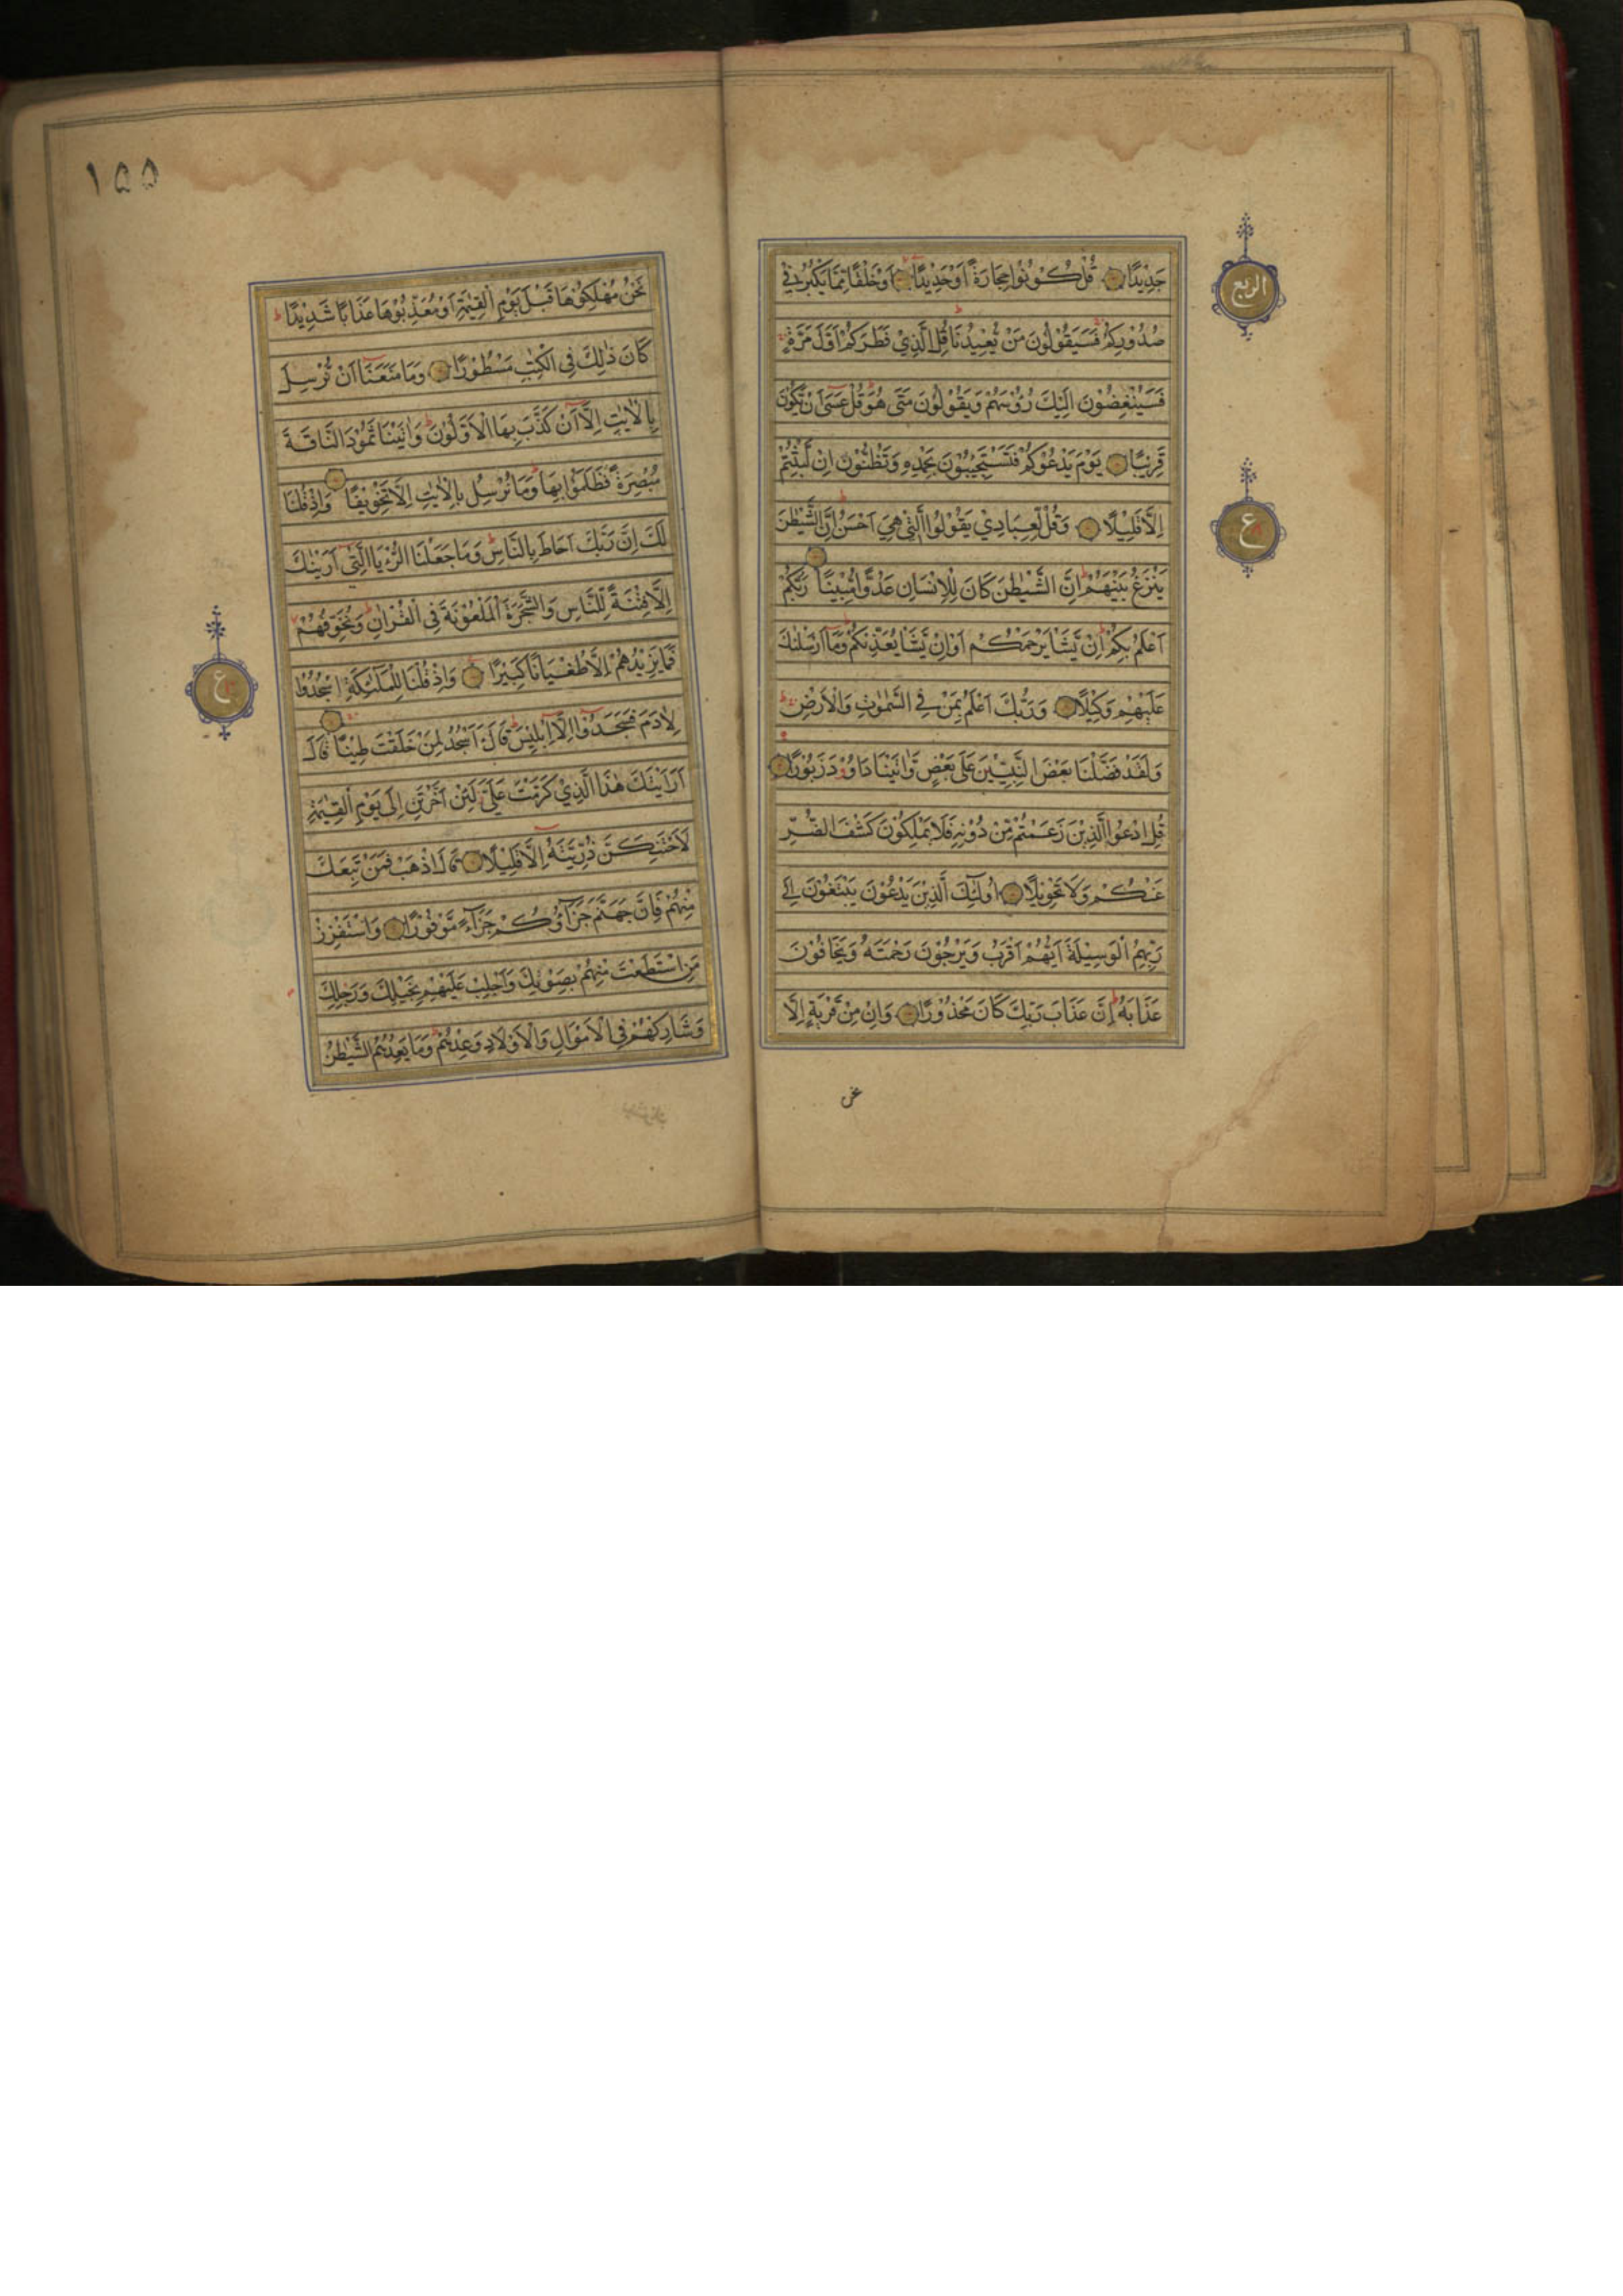 الربع
جَدِيْدًا قُلْ كُوْنُوْا حِجَارَةً اَوْحَدِيْدًا اَوْخَلْقًا مِمَّا يَكْبُرُ فِيْ
صُدُوْرِكُمْ فَسَيَقُوْلُوْنَ مَنْ يُّعِيْدُنَا قُلِ الَّذِيْ فَطَرَكُمْ اَوَّلَ مَرَّةٍ
فَسَيُنْغِضُوْنَ اِلَيْكَ رُؤُسَهُمْ وَيَقُوْلُوْنَ مَتٰى هُوَ قُلْ عَسٰٓى اَنْ يَّكُوْنَ
قَرِيْبًا يَوْمَ يَدْعُوْكُمْ فَتَسْتَجِيْبُوْنَ بِحَمْدِهٖ وَتَظُنُّوْنَ اِنْ لَّبِثْتُمْ
اِلَّا قَلِيْلًا وَقُلْ لِّعِبَادِيْ يَقُوْلُوا الَّتِيْ هِيَ اَحْسَنُ اِنَّ الشَّيْطٰنَ
ع
يَنْزَغُ بَيْنَهُمْ اِنَّ الشَّيْطٰنَ كَانَ لِلْاِنْسَانِ عَدُوًّا مُّبِيْنًا رَبُّكُمْ
اَعْلَمُ بِكُمْ اِنْ يَّشَاْ يَرْحَمْكُمْ اَوْاِنْ يَّشَاْ يُعَذِّبْكُمْ وَمَآ اَرْسَلْنٰكَ
عَلَيْهِمْ وَكِيْلًا وَرَبُّكَ اَعْلَمُ بِمَنْ فِي السَّمٰوٰتِ وَالْاَرْضِ
وَلَقَدْ فَضَّلْنَا بَعْضَ النَّبِيّٖنَ عَلٰى بَعْضٍ وَّاٰتَيْنَا دَاوٗدَ زَبُوْرًا
قُلِ ادْعُوا الَّذِيْنَ زَعَمْتُمْ مِّنْ دُوْنِهٖ فَلَا يَمْلِكُوْنَ كَشْفَ الضُّرِّ
عَنْكُمْ وَلَا تَحْوِيْلًا اُولٰٓئِكَ الَّذِيْنَ يَدْعُوْنَ يَبْتَغُوْنَ اِلٰى
رَبِّهِمُ الْوَسِيْلَةَ اَيُّهُمْ اَقْرَبُ وَيَرْجُوْنَ رَحْمَتَهٗ وَيَخَافُوْنَ
عَذَابَهٗ اِنَّ عَذَابَ رَبِّكَ كَانَ مَحْذُوْرًا وَاِنْ مِّنْ قَرْيَةٍ اِلَّا
نحن
١٥٥
نَحْنُ مُهْلِكُوْهَا قَبْلَ يَوْمِ الْقِيٰمَةِ اَوْمُعَذِّبُوْهَا عَذَابًا شَدِيْدًا
كَانَ ذٰلِكَ فِي الْكِتٰبِ مَسْطُوْرًا وَمَا مَنَعَنَآ اَنْ نُّرْسِلَ
بِالْاٰيٰتِ اِلَّآ اَنْ كَذَّبَ بِهَا الْاَوَّلُوْنَ وَاٰتَيْنَا ثَمُوْدَ النَّاقَةَ
مُبْصِرَةً فَظَلَمُوْا بِهَا وَمَا نُرْسِلُ بِالْاٰيٰتِ اِلَّا تَخْوِيْفًا وَاِذْ قُلْنَا
لَكَ اِنَّ رَبَّكَ اَحَاطَ بِالنَّاسِ وَمَا جَعَلْنَا الرُّءْيَا الَّتِيْٓ اَرَيْنٰكَ
اِلَّا فِتْنَةً لِّلنَّاسِ وَالشَّجَرَةَ الْمَلْعُوْنَةَ فِي الْقُرْاٰنِ وَنُخَوِّفُهُمْ
فَمَا يَزِيْدُهُمْ اِلَّا طُغْيَانًا كَبِيْرًا وَاِذْ قُلْنَا لِلْمَلٰٓئِكَةِ اسْجُدُوْا
ع
لِاٰدَمَ فَسَجَدُوْٓا اِلَّآ اِبْلِيْسَ قَالَ ءَاَسْجُدُ لِمَنْ خَلَقْتَ طِيْنًا قَالَ
اَرَاَيْتَكَ هٰذَا الَّذِيْ كَرَّمْتَ عَلَيَّ لَئِنْ اَخَّرْتَنِ اِلٰى يَوْمِ الْقِيٰمَةِ
لَاَحْتَنِكَنَّ ذُرِّيَّتَهٗٓ اِلَّا قَلِيْلًا قَالَ اذْهَبْ فَمَنْ تَبِعَكَ
مِنْهُمْ فَاِنَّ جَهَنَّمَ جَزَآؤُكُمْ جَزَآءً مَّوْفُوْرًا وَاسْتَفْزِزْ
مَنِ اسْتَطَعْتَ مِنْهُمْ بِصَوْتِكَ وَاَجْلِبْ عَلَيْهِمْ بِخَيْلِكَ وَرَجِلِكَ
وَشَارِكْهُمْ فِي الْاَمْوَالِ وَالْاَوْلَادِ وَعِدْهُمْ وَمَا يَعِدُهُمُ الشَّيْطٰنُ